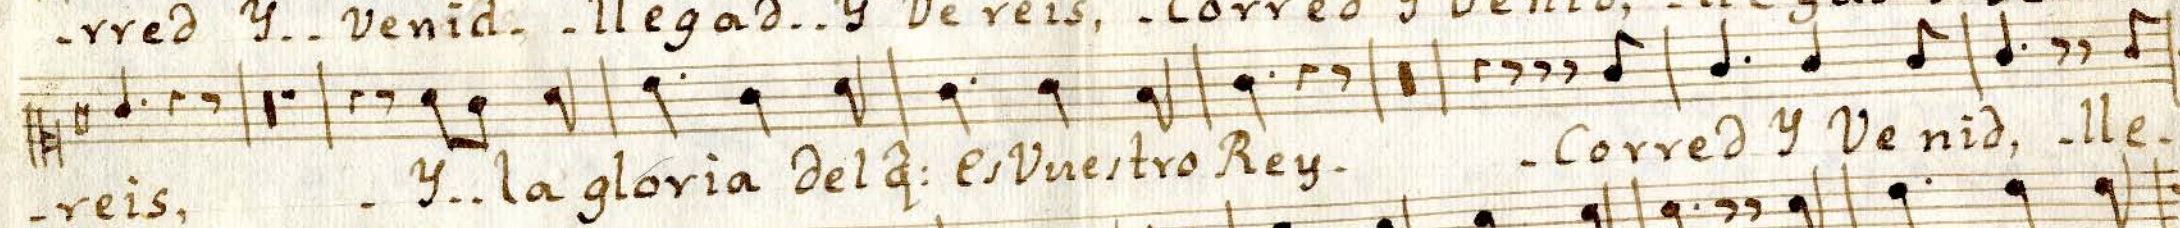 -rred Y.. venid. .llegad..Y Vereis, .Corred Y Venid,
-reis, - Y..la gloria del q̃: es Vuestro Rey. -Corred Y Venid, -lle-